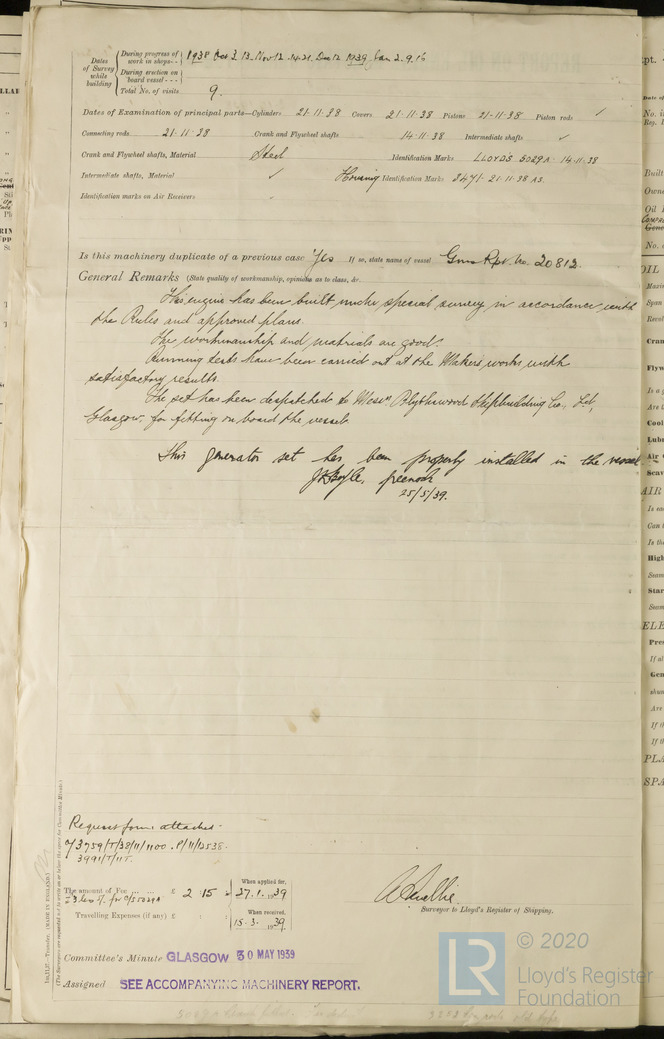 Dates of Survey while building
During progress of work in shops-- 1938 Oct 3. 13. Nov 12. 14. 21. Dec 12 1939 Jan 2. 9. 16
During erection on board vessel---
Total No. of visits 9.
Dates of Examination of principal parts—Cylinders 21-11-38 Covers 21-11-38 Pistons 21-11-38 Piston rods ✓
Connecting rods 21-11-38 Crank and Flywheel shafts 14-11-38 Intermediate shafts ✓
Crank and Flywheel shafts, Material Steel Identification Marks LLOYDS 5029A 14-11-38
Intermediate shafts, Material ✓ Housing Identification Marks 3471 21-11-38 AS.
Identification marks on Air Receivers
Is this machinery duplicate of a previous case Yes If so, state name of vessel Gms Rpt. No. 20812.
General Remarks (State quality of workmanship, opinions as to class, &c.
This engine has been built under special survey in accordance with
the Rules and approved plans.
The workmanship and materials are good.
Running tests have been carried out at the Makers works with
satisfactory results.
The set has been despatched to Messrs Blythswood Shipbuilding Co., Ltd,
Glasgow, for fitting on board the vessel.
This generator set has been properly installed in the vessel
Greenock
25/5/39.
Request form attached.
3759/T/38/11/1100. P/11/12538.
3991/T/11T.
The amount of Fee ... ... £ 2 : 15 When applied for, 27.1.1939
Travelling Expenses (if any) £ : : When received, 15.3.1939
Surveyor to Lloyd's Register of Shipping.
Committee's Minute GLASGOW 30 MAY 1939
Assigned SEE ACCOMPANYING MACHINERY REPORT.
(MADE IN ENGLAND.)
LR © 2020
Lloyd's Register
Foundation